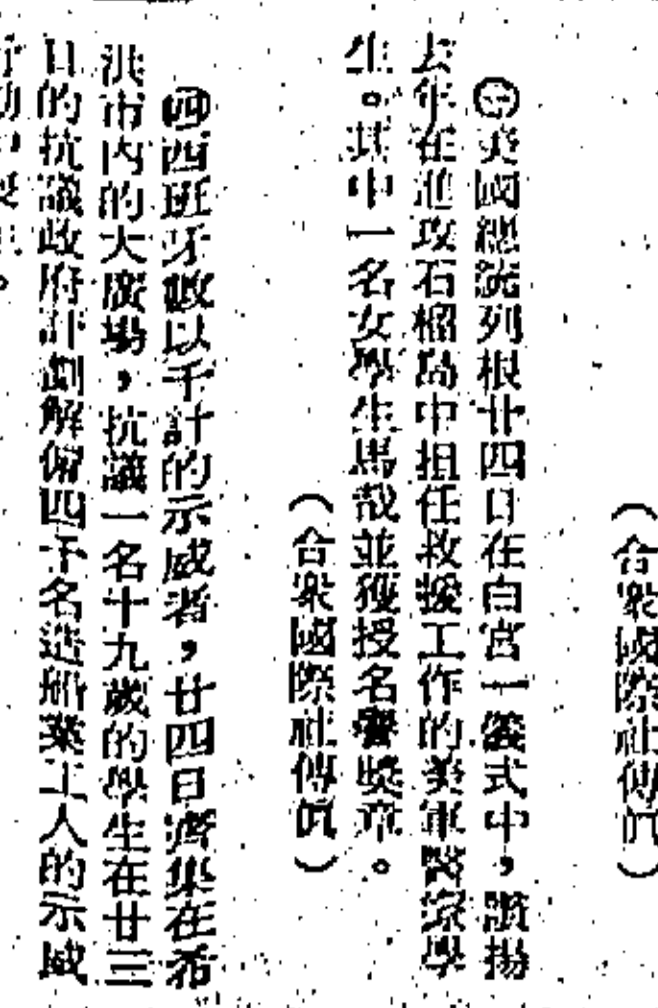 （合衆國際社傳眞）
㊂美國總統列根廿四日在白宮一儀式中，讚揚
去年在進攻石榴島中担任救援工作的美軍醫療學
生。其中一名女學生馬哉並獲授名譽獎章。
（合衆國際社傳眞）
㊃西班牙數以千計的示威者，廿四日濟集在希
洪市內的大廣場，抗議一名十九歲的學生在廿三
日的抗議政府計劃解僱四千名造船業工人的示威